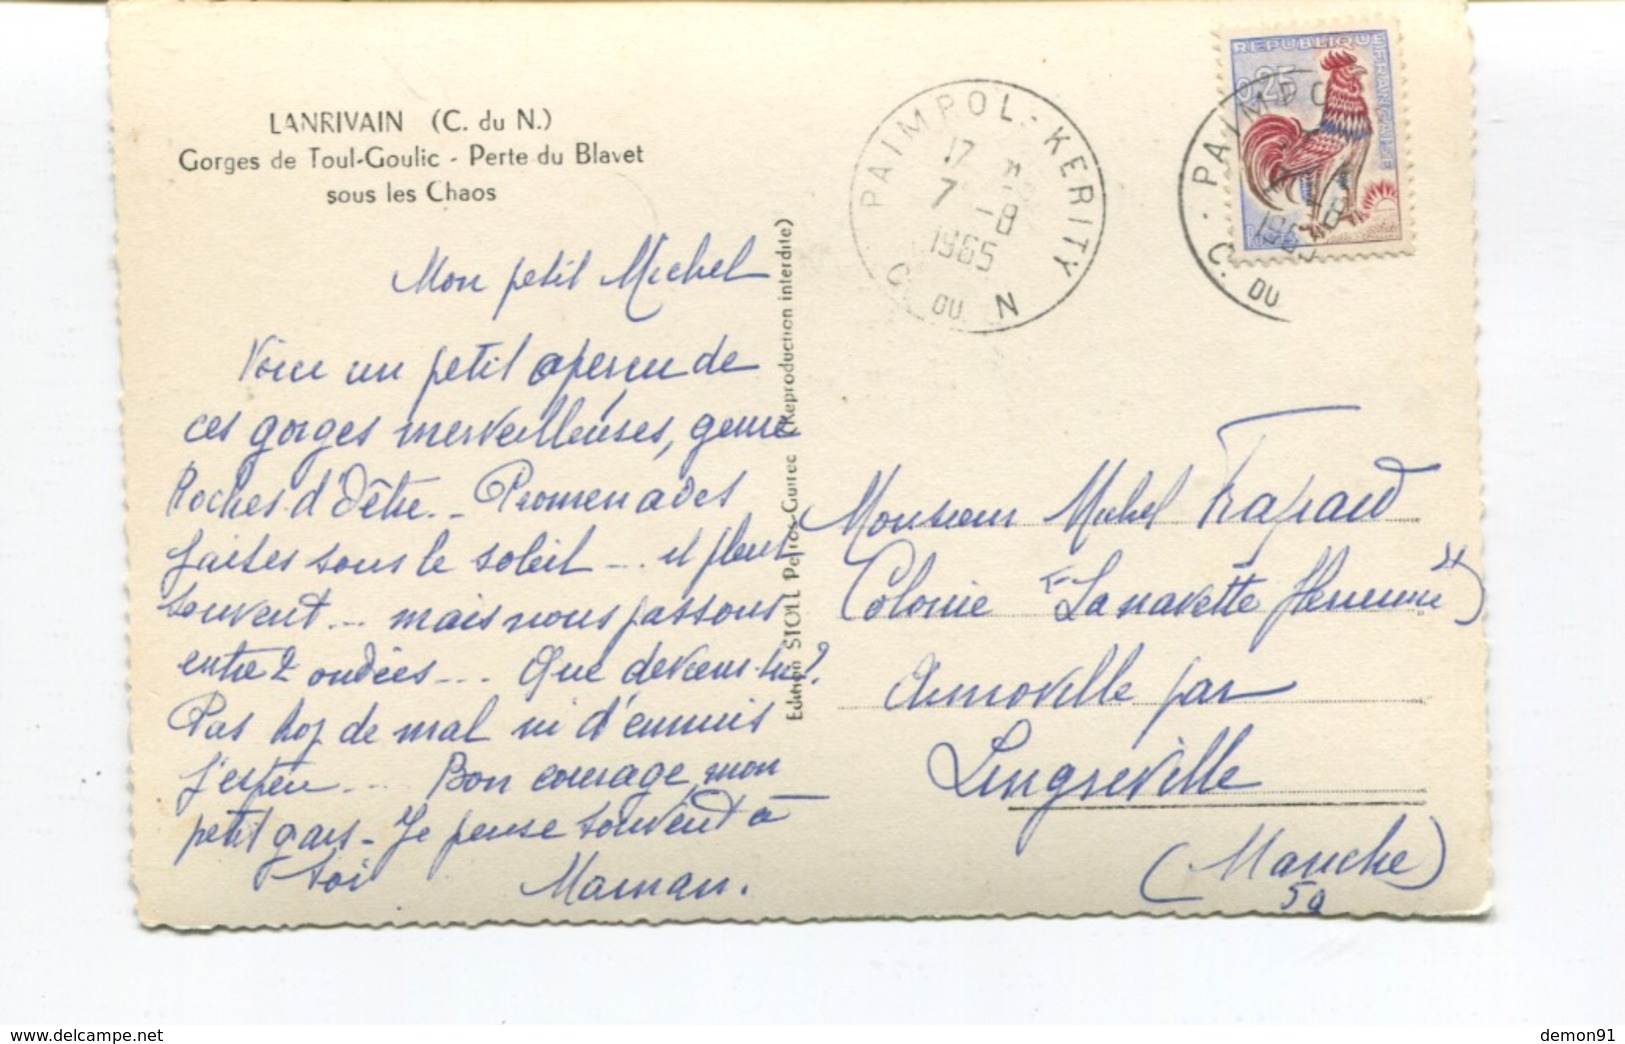 LANRIVAIN (C. du N.)
Gorges de Toul-Goulic - Perte du Blavet
sous les Chaos
Mon petit Michel
Voici un petit aperçu de
ces gorges merveilleuses, genre
Roches d'Oëtre. - Promenades
faites sous le soleil ... il pleut
souvent ... mais nous passons
entre 2 ondées ... Que deviens-tu?
Pas trop de mal ni d'ennuis
j'espère ... Bon courage, mon
petit gars - Je pense souvent à
toi Maman.
Edition STOLL Perros-Guirec (Reproduction interdite)
PAIMPOL - KERITY
17 H
7 - 8
1965
C. DU N
REPUBLIQUE FRANÇAISE
0,25
PAIMPO
-8
C. DU
Monsieur Michel
Colonie "La navette fleurie"
par
Lingreville
(Manche)
50
www.delcampe.net
demon91